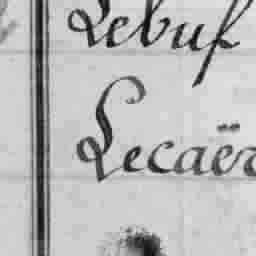 Lebuf
Lecaër